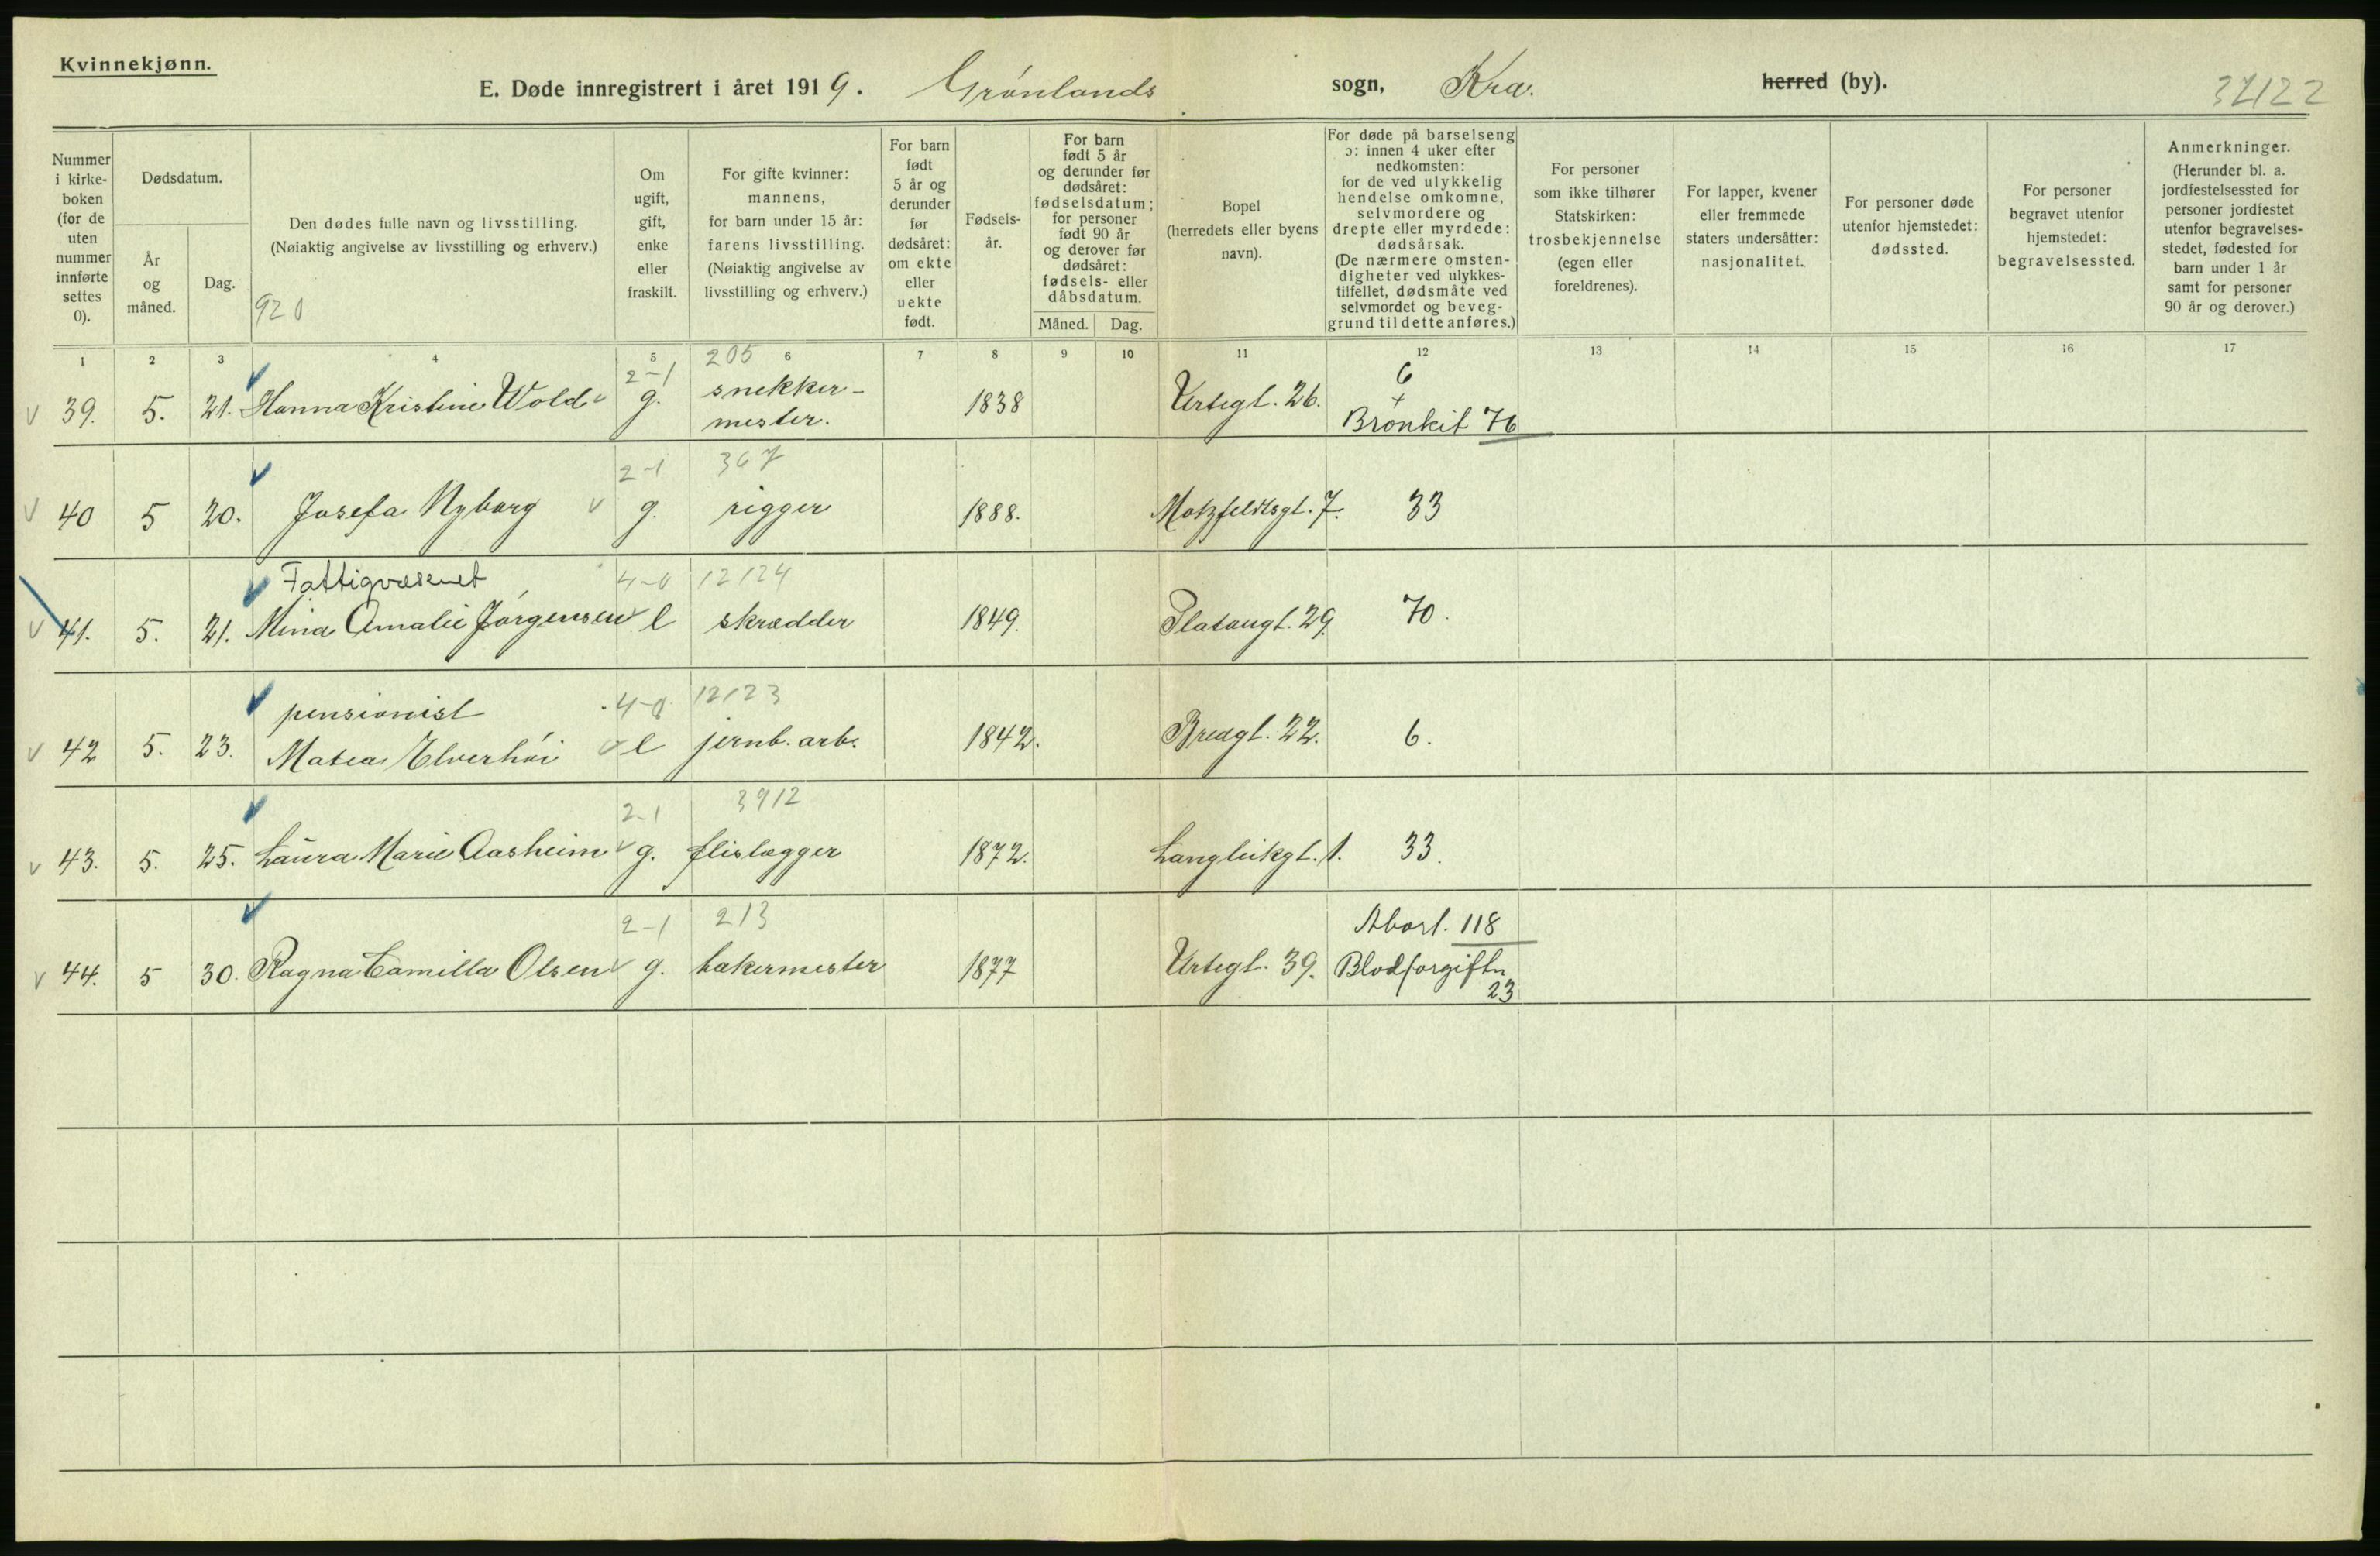 Kvinnekjønn.
E. Døde innregistrert i året 1919. Grønlands sogn, Kra. herred (by).
Nummer i kirke-boken (for de uten nummer innførte settes 0).
Dødsdatum.
År og måned.
Dag.
Den dødes fulle navn og livsstilling.
(Nøiaktig angivelse av livsstilling og erhverv.)
920
Om ugift, gift, enke eller fraskilt.
For gifte kvinner: mannens, for barn under 15 år: farens livsstilling. (Nøiaktig angivelse av livsstilling og erhverv.)
For barn født 5 år og derunder før dødsåret: om ekte eller uekte født.
Fødsels-år.
For barn født 5 år og derunder før dødsåret: fødselsdatum; for personer født 90 år og derover før dødsåret: fødsels- eller dåbsdatum.
Måned.
Dag.
Bopel (herredets eller byens navn).
For døde på barselseng ɔ: innen 4 uker efter nedkomsten: for de ved ulykkelig hendelse omkomne, selvmordere og drepte eller myrdede: dødsårsak. (De nærmere omsten-digheter ved ulykkes-tilfellet, dødsmåte ved selvmordet og beveg-grund til dette anføres.)
For personer som ikke tilhører Statskirken: trosbekjennelse (egen eller foreldrenes).
For lapper, kvener eller fremmede staters undersåtter: nasjonalitet.
For personer døde utenfor hjemstedet: dødssted.
For personer begravet utenfor hjemstedet: begravelsessted.
Anmerkninger. (Herunder bl. a. jordfestelsessted for personer jordfestet utenfor begravelses-stedet, fødested for barn under 1 år samt for personer 90 år og derover.)
1 2 3 4 5 6 7 8 9 10 11 12 13 14 15 16 17
2-1 205 6
39. 5. 21. Hanna Kristine Wold g. snekker-mester. 1838 Urtegt. 26. Bronkit 76
2-1 367
40 5 20. Josefa Nyborg g. rigger 1888. Motzfeldtsgt. 7. 33
Fattigvæsenet 4-0 12124
41. 5. 21. Mina Amalie Jørgensen l skrædder 1849. Platougt. 29. 70.
pensionist 4-0 12123
42 5. 23. Matea Elverhøi l jernb. arb. 1842. Bredgt. 22. 6.
2-1 3912
43. 5. 25. Laura Marie Aasheim g. flislægger 1872. Langleikgt. 1. 33.
2-1 213 Abort. 118
44. 5 30. Ragna Camilla Olsen g. bakermester 1877 Urtegt. 39. Blodforgiftn 23